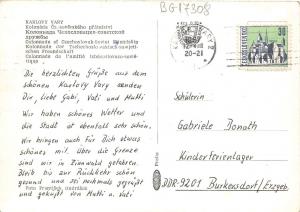 BG-17308
KARLOVY VARY
Kolonáda čs.-sovětského přátelství
Колоннада Чехословацко-советской
дружбы
Colonnade of Czechoslovak-Soviet
Kolonnade der Tschechoslowakisch-sowjetischen
Freundschaft
Colonnade de l'amitié tchécoslovaque-sovié-
tique
Die herzlichsten Grüße aus dem
schönen Karlovy Vary senden
Dir, liebe Gabi, Vati und Mutti
Wir haben schönes Wetter und
die Stadt ist ebenfalls sehr schön.
Wir bringen auch für Dich etwas
schönes mit. Über die Grenze
sind wir in Zinnwald gefahren.
Bleib bis zur Rückkehr schön
gesund und sei nochmals gegrüßt
und geküßt von Mutti u. Vati
Foto František
20-21
30
Schülerin
Gabriele Bonath
Kinderferienlager
DDR-9201 Burkersdorf/Erzgeb.